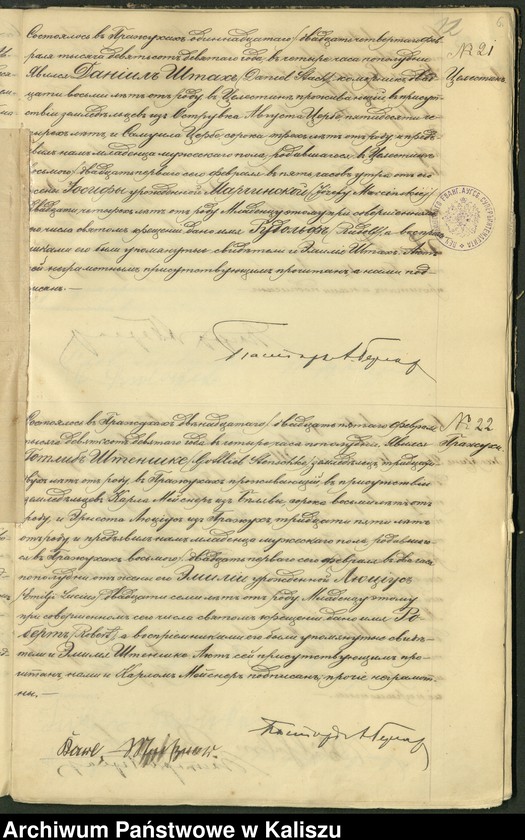 Состоялось в Пражухах одиннадцатаго /двадцать четвертаго/ Фев-
раля тысяча девятьсот девятаго года, в четыре часа пополудни.
Явился Даниил Штах /Daniel Stach/
цати восьми лет от роду в Целестине проживающий в присут-
ствии земледельцев из Острувка Августа Цербе пятидесяти че-
тырех лет, и Самуила Цербе сорока трех лет от роду и предъ-
явил нам младенца мужескаго пола, родившагося в Целестине
восьмого /двадцать перваго/ сего февраля в пять часов утра от его
жены Юзефы урожденной Марчинской
двадцати четырех лет от роду. Младенцу этому при совершенном
сего числа святом крещении дано имя Рудольф /Rudolf/, а воспри-
емниками его были упомянутые свидетели и Эмилие Штах. Акт
сей неграмотным присутствующим прочитан, а нами под-
писан. —
Пастор А. Герхар
№ 21
Целестин
Состоялось в Пражухах двенадцатаго /двадцать пятаго/ Февраля
тысяча девятьсот девятаго года в четыре часа пополудни. Явился
Готлиб Штеншке /Gottlieb Stenschke/ земледелец, тридцати
двух лет от роду, в Пражухах проживающий, в присутствии
земледельцев Карла Мейснер из сорока восьми лет от
роду, и Эрнста Люциус из Пражух, тридцати пяти лет
от роду и предъявил нам младенца мужескаго пола, родивша-
гося в Пражухах восьмого /двадцать перваго/ сего февраля в два часа
пополудни от жены его Эмилии урожденной Люциус
/Emilje Lucius/, двадцати семи лет от роду. Младенцу этому
при совершенном сего числа святом крещении дано имя Ро-
берт /Robert/, а восприемниками его были упомянутые свиде-
тели и Эмилия Штеншке. Акт сей присутствующим про-
читан, нами и Карлом Мейснер подписан, прочие неграмот-
ны. —
Пастор А. Герхар
№ 22
Пражухи
Archiwum Państwowe w Kaliszu